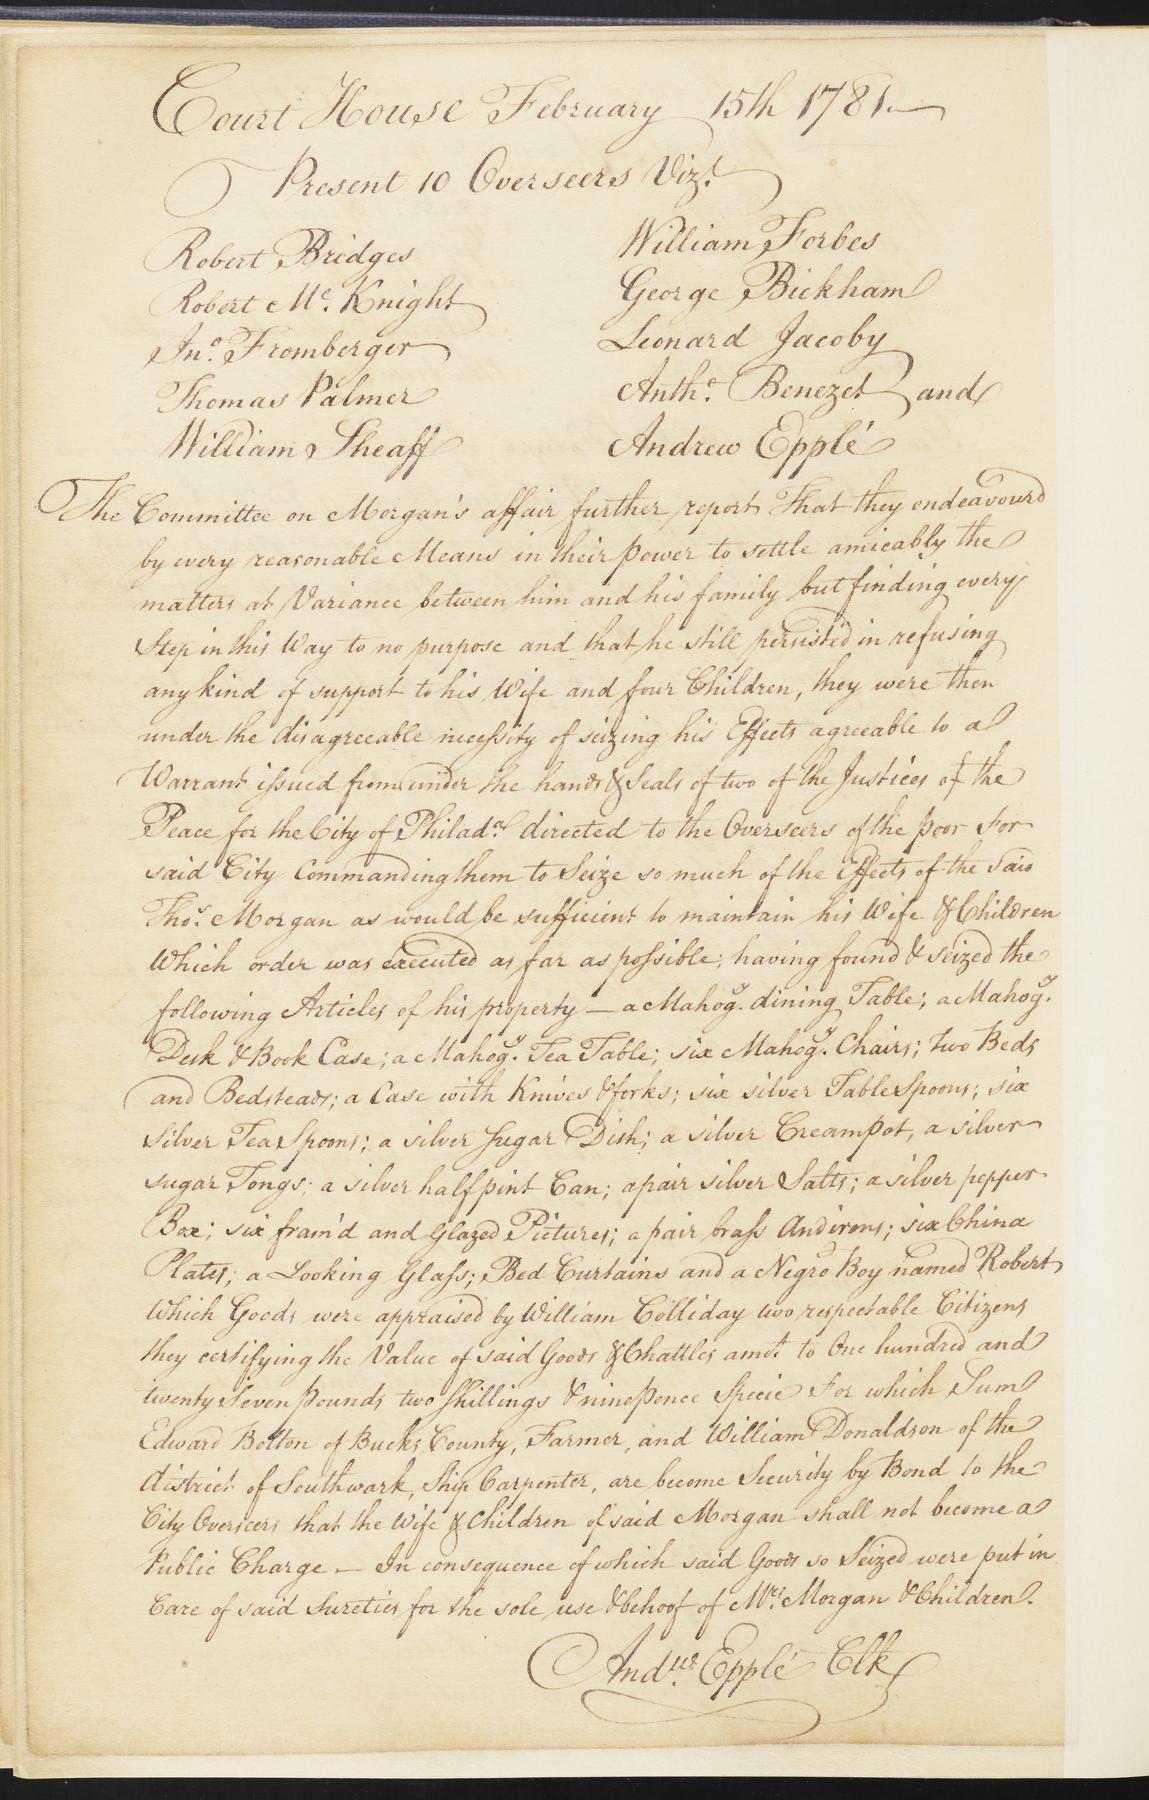 Court House February 15th 1781.
Present 10 Overseers Vizt.
Robert Bridges
Robert Mc. Knight
Jno. Fromberger
Thomas Palmer
William Sheaff
William Forbes
George Bickham
Leonard Jacoby
Anthe. Benezet and
Andrew Epplé
The Committee on Morgan's affair further report That they endeavourd
by every reasonable Means in their power to settle amicably the
matters at Variance between him and his family but finding every
Step in this Way to no purpose and that he still persisted in refusing
any kind of support to his Wife and four Children, they were then
under the disagreeable necessity of seizing his Effects agreeable to a
Warrant issued from under the hands & Seals of two of the Justices of the
Peace for the City of Philada. directed to the Overseers of the poor for
said City Commanding them to Seize so much of the Effects of the said
Thos. Morgan as would be sufficient to maintain his Wife & Children
Which order was executed as far as possible; having found & seized the
following Articles of his property — a Mahogy. dining Table; a Mahogy.
Desk & Book Case; a Mahogy. Tea Table; six Mahogy. Chairs; two Beds
and Bedsteads; a Case with Knives & forks; six silver Table Spoons; six
Silver Tea Spoons; a silver Sugar Dish; a silver Creampot, a silver
sugar Tongs; a silver half pint Can; a pair silver Salts; a silver pepper
Box; six fram'd and Glazed Pictures; a pair brass Andirons; six China
Plates; a Looking Glass; Bed Curtains and a Negro Boy named Robert
Which Goods were appraised by William Colliday two respectable Citizens
they certifying the Value of said Goods & Chattles amot. to One hundred and
twenty Seven pounds two Shillings & ninepence Specie For which Sum
Edward Bolton of Bucks County, Farmer, and William Donaldson of the
district of Southwark, Ship Carpenter, are become Security by Bond to the
City Overseers that the Wife & Children of said Morgan shall not become a
Public Charge — In consequence of which said Goods so Seized were put in
Care of said Sureties for the sole use & behoof of Mrs. Morgan & Children.
Andw. Epplé Clk